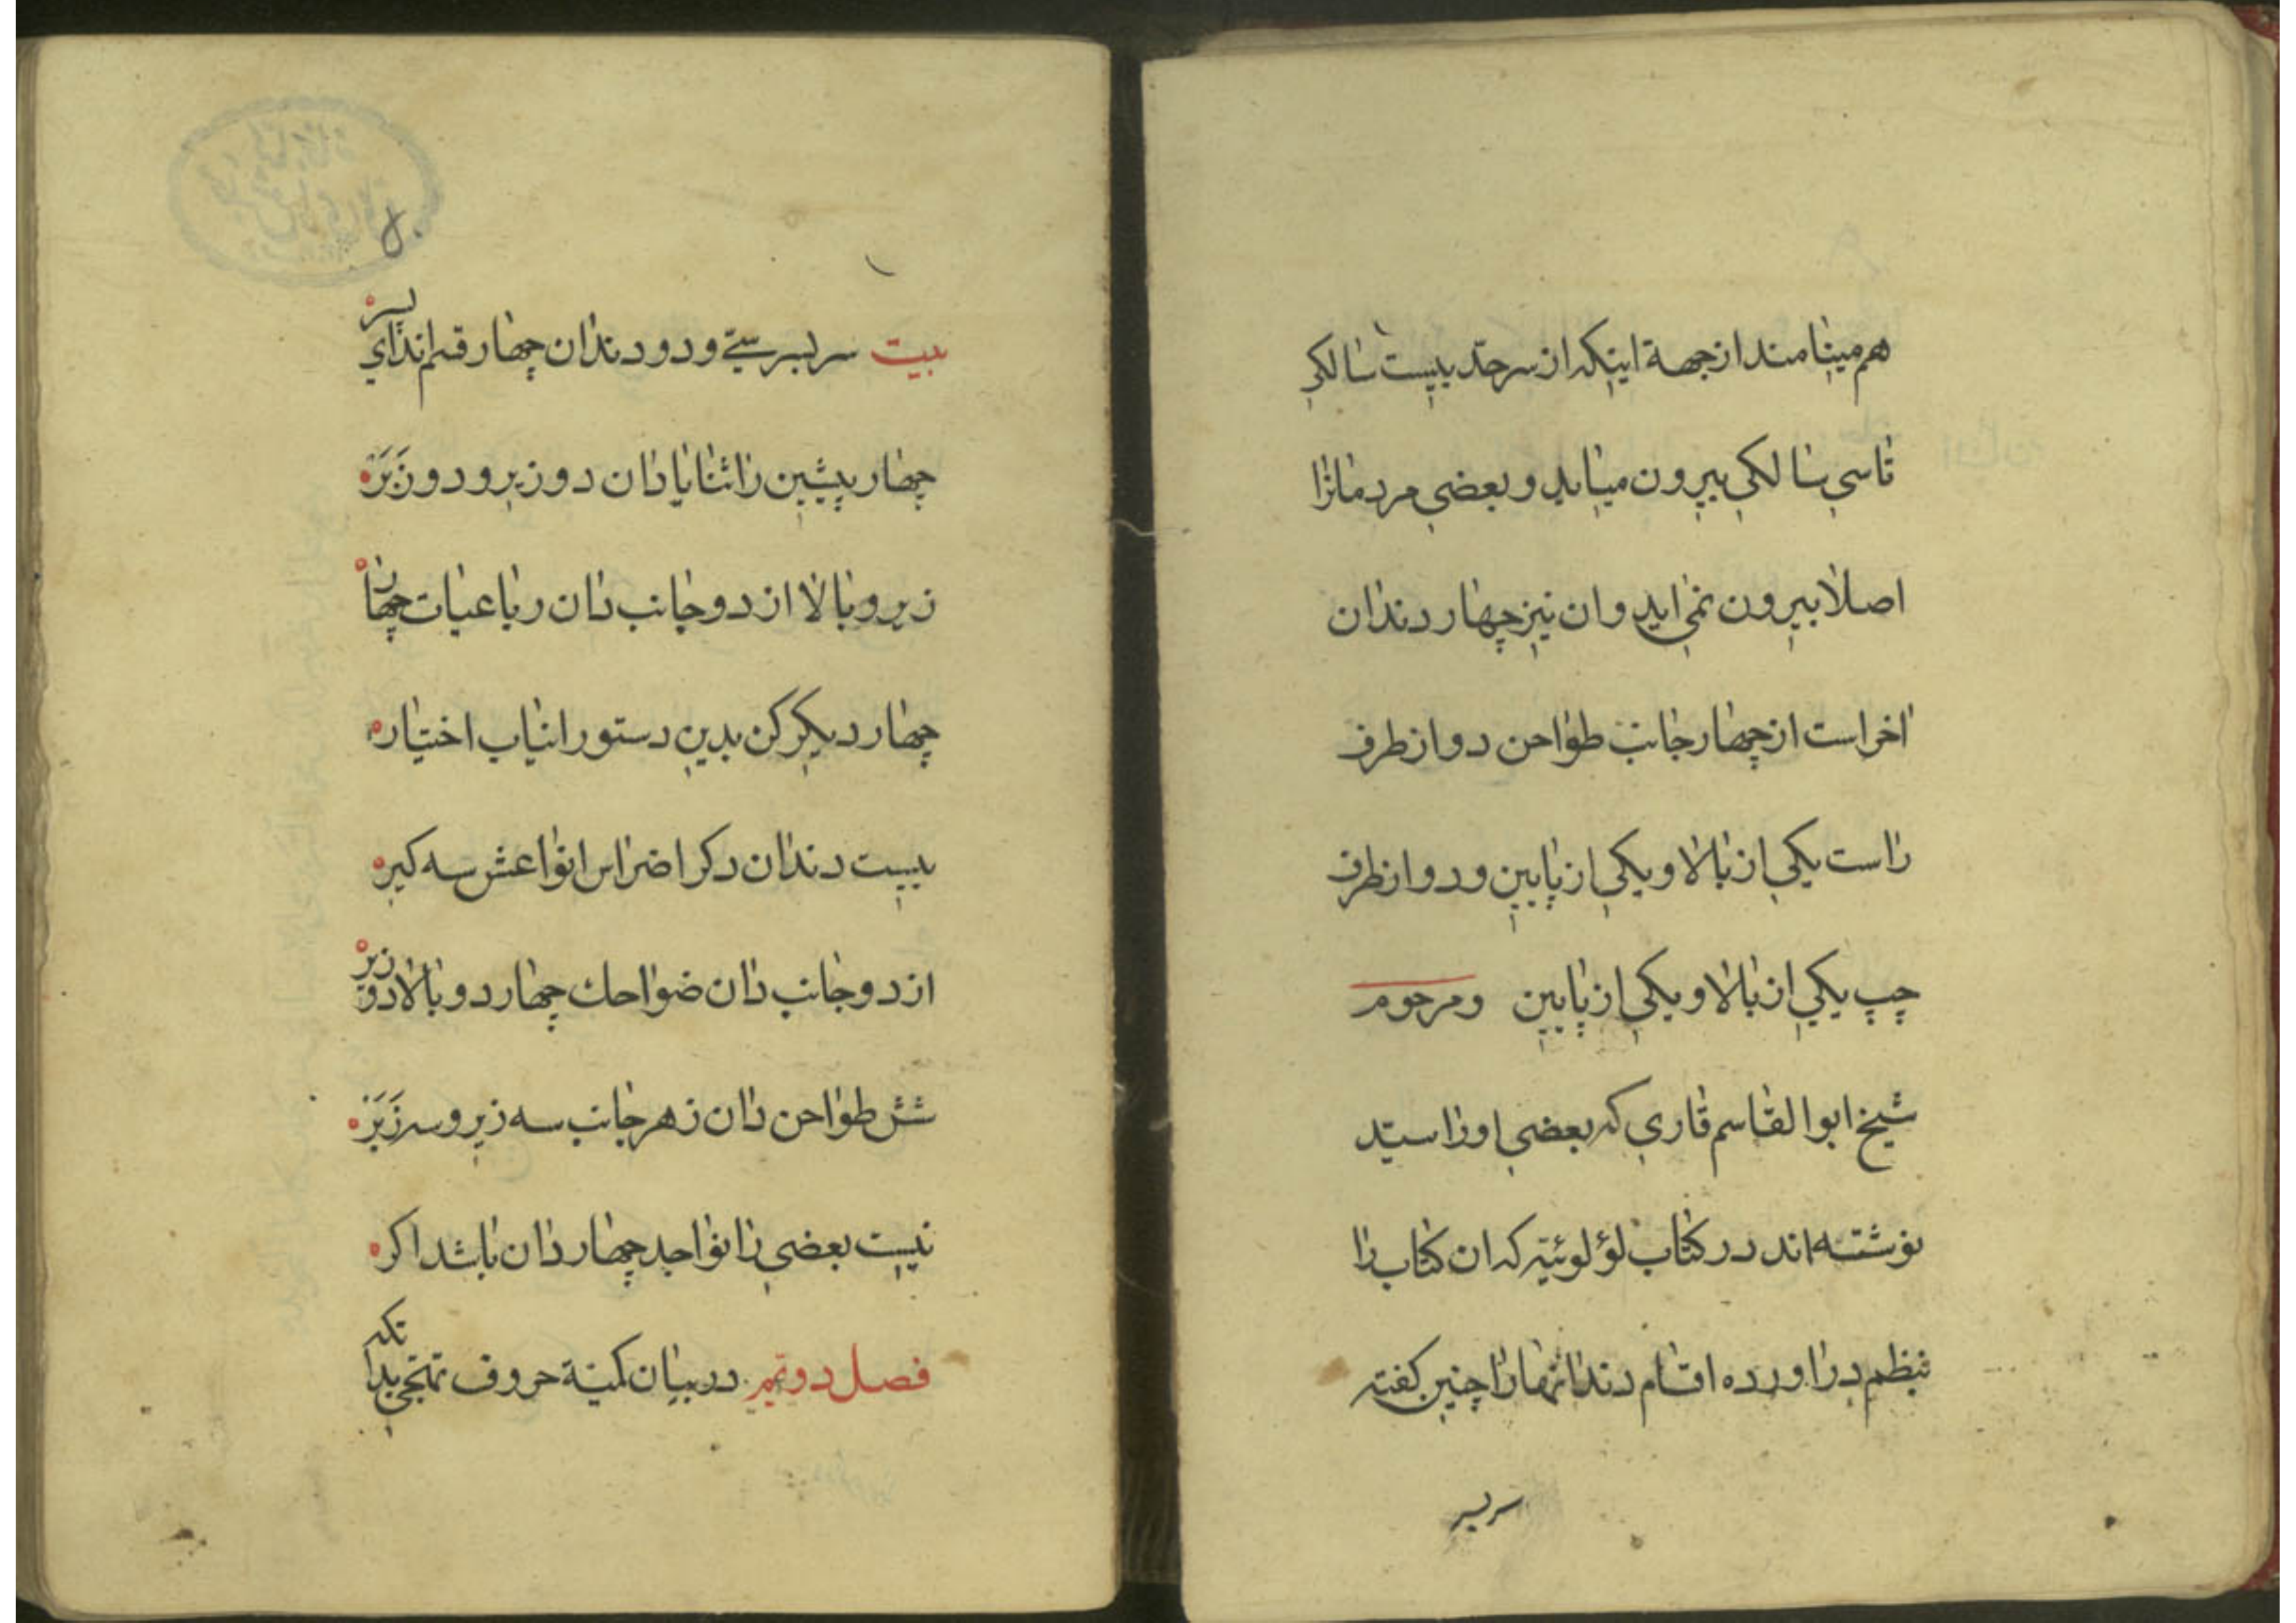 هم مینامند از جهة اینکه از سر حدّ بیست سالکی
تا سی سالکی بیرون میاید و بعضی مردمانرا
اصلا بیرون نمی اید و ان نیز چهار دندان
اخر است از چهار جانب طواحن دو از طرف
راست یکی از بالا و یکی از پایین و دو از طرف
چپ یکی از بالا و یکی از پایین و مرحوم
شیخ ابوالقاسم قاری که بعضی او را سیّد
نوشته اند در کتاب لؤلوئیّه که ان کتاب را
بنظم در اورده اقسام دندانها را چنین کفته
سربسر
بیت سربسر سی و دو دندان چهار قسم اند ای پسر
چهار پیشین را ثنایا دان دو زیر و دو زَبَر
زیر و بالا از دو جانب دان رباعیات چهار
چهار دیکر کن بدین دستور انیاب اختیار
بیست دندان دکر اضراس انواعش سه کیر
از دو جانب دان ضواحك چهار دو بالا دو زیر
شش طواحن دان ز هر جانب سه زیر و سه زَبَر
نیست بعضی را نواجد چهار دان باشد اکر
فصل دویّم در بیان کمیّة حروف تهجّی بدانکه